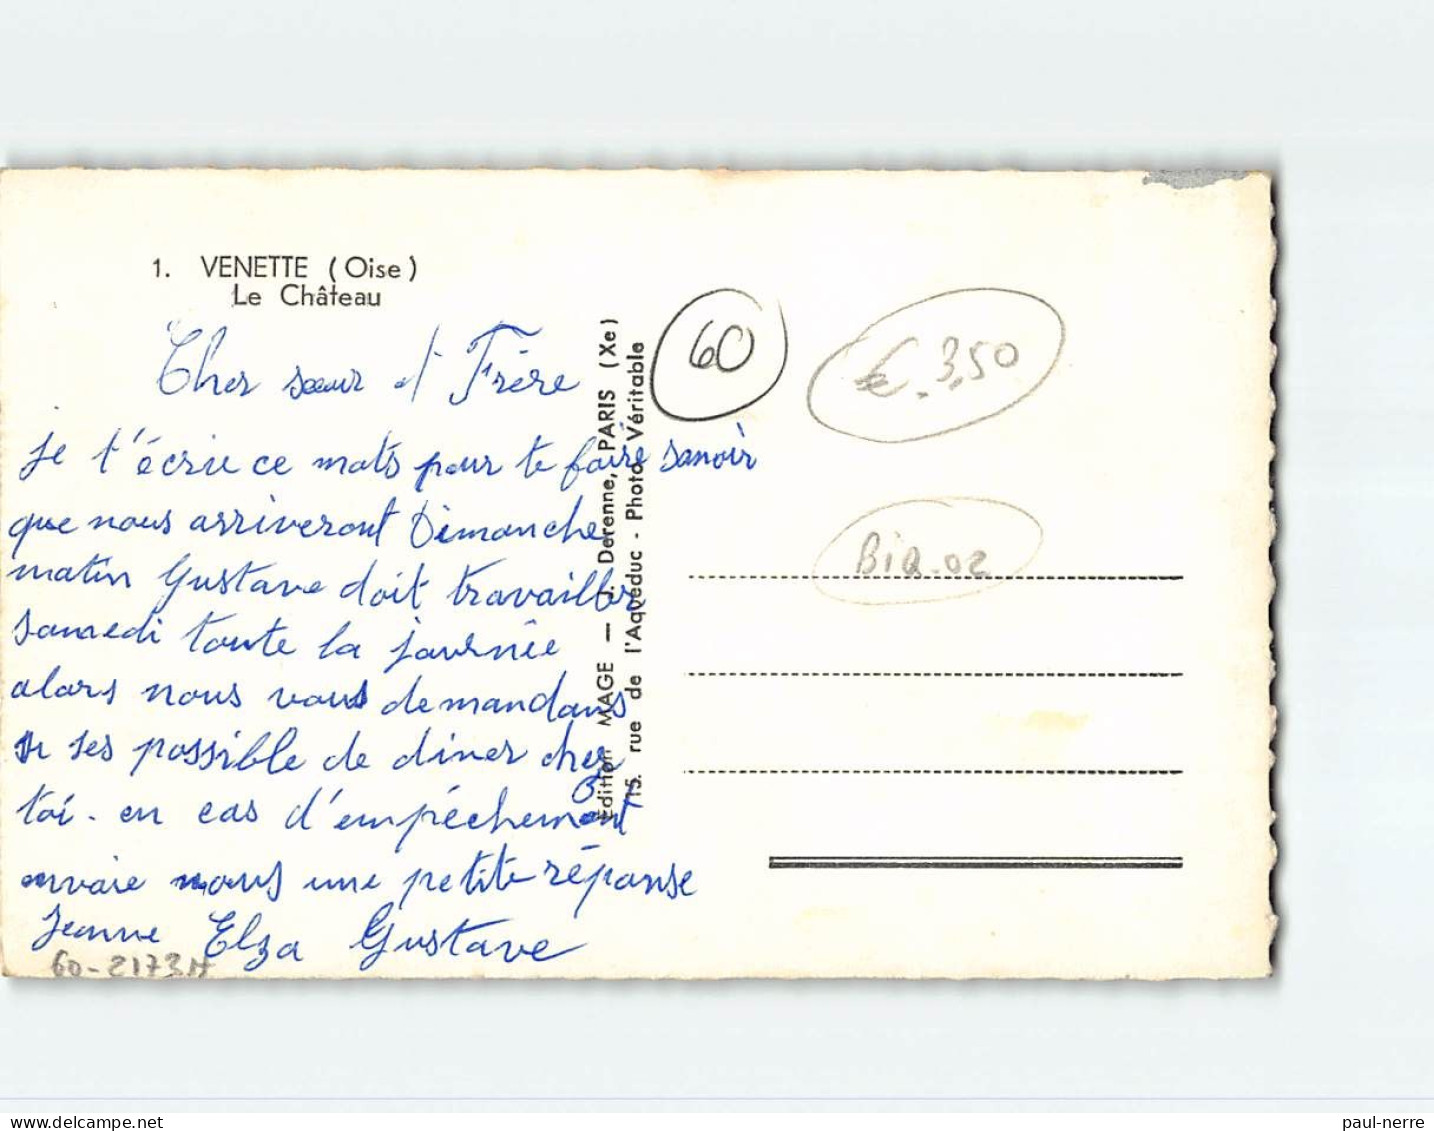 1. VENETTE (Oise)
Le Château
Cher sœur et Frère
je t'écrie ce mots pour te faire savoir
que nous arriveront Dimanche
matin Gustave doit travailler
samedi toute la journée
alors nous vous demandons
si ses possible de diner chez
toi. en cas d'empéchement
envoie nous une petite réponse
Jeanne Elza Gustave
60-2173M
Edition MAGE — J. Derenne, PARIS (Xe)
15. rue de l'Aqueduc - Photo Véritable
60
€.3,50
BIQ-02
paul-nerre